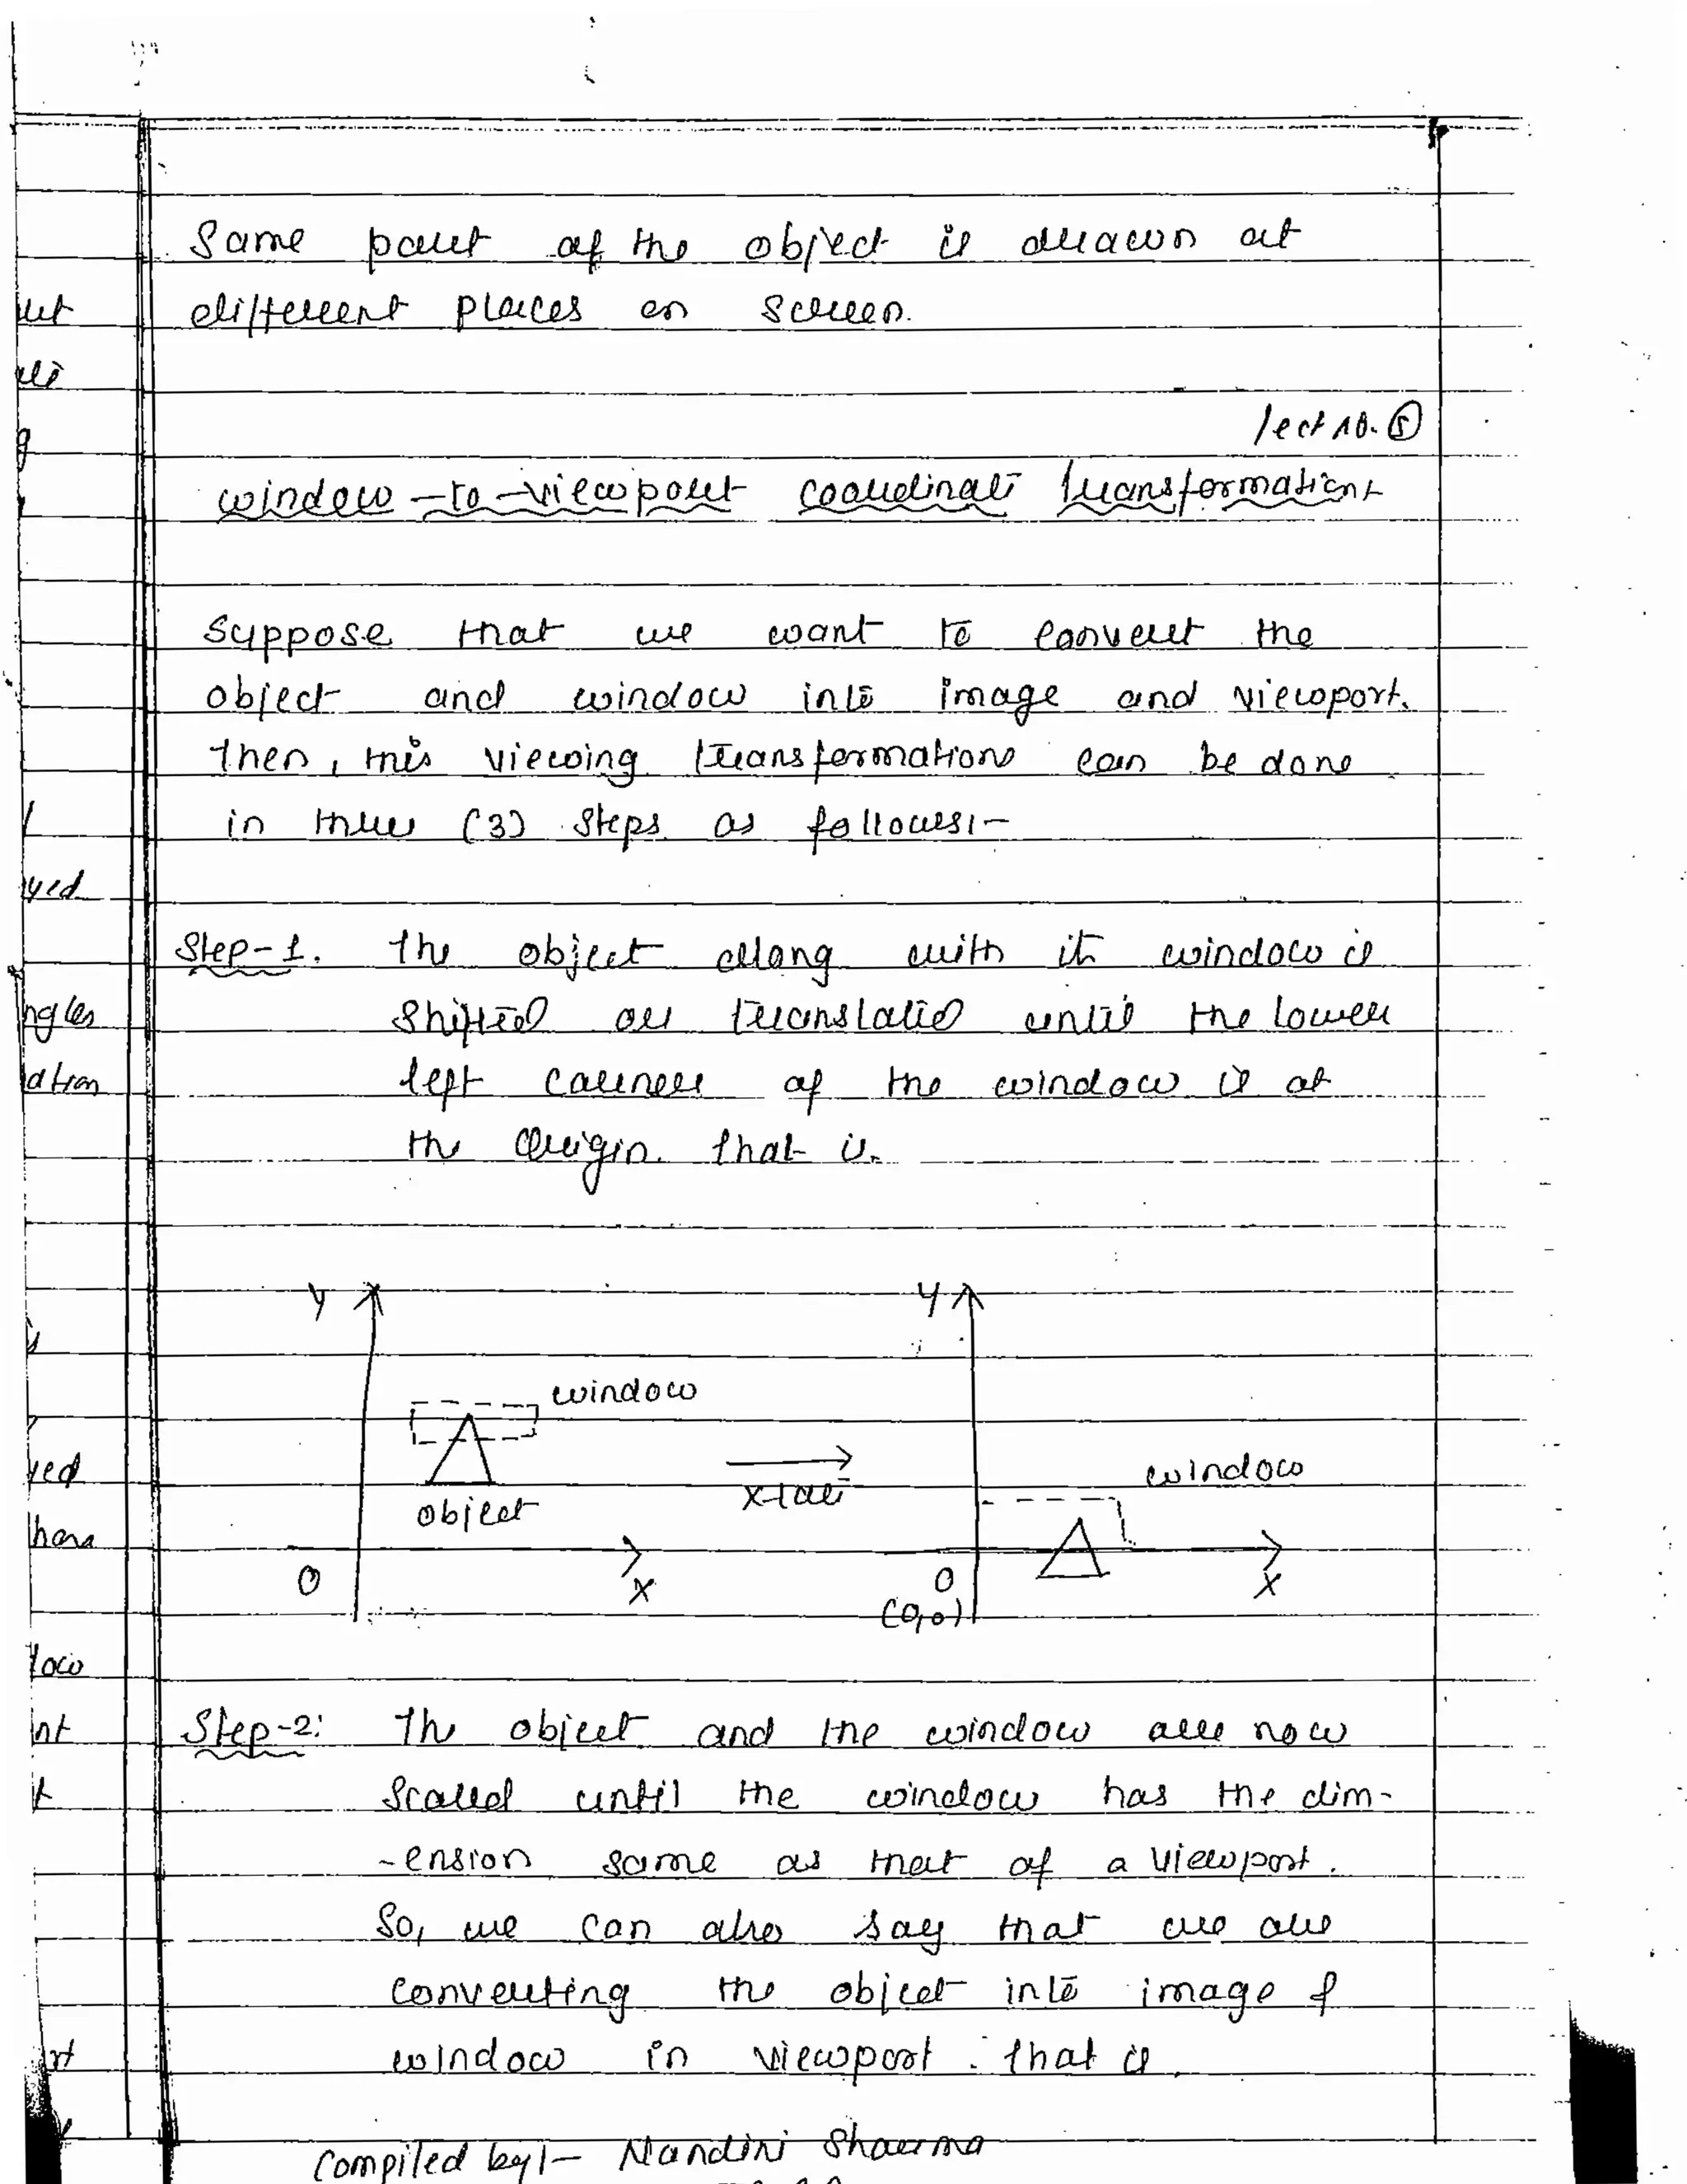 Same part of the object is drawn at
different places on screen.
lect no. 5
window-to-viewport coordinate transformation
Suppose that we want to convert the
object and window into image and viewport.
Then, this viewing transformations can be done
in three (3) steps as follows:-
Step-1. The object along with its window is
shifted or translated until the lower
left corner of the window is at
the origin. That is.
Y
window
object
O
X
x-late
Y
window
O
(0,0)
X
Step-2: The object and the window are now
scaled until the window has the dim-
-ension same as that of a viewport.
So, we can also say that we are
converting the object into image &
window in viewport. That is
yed
ngles
ation
yed
low
nt
rt
Compiled by:- Nandini Sharma